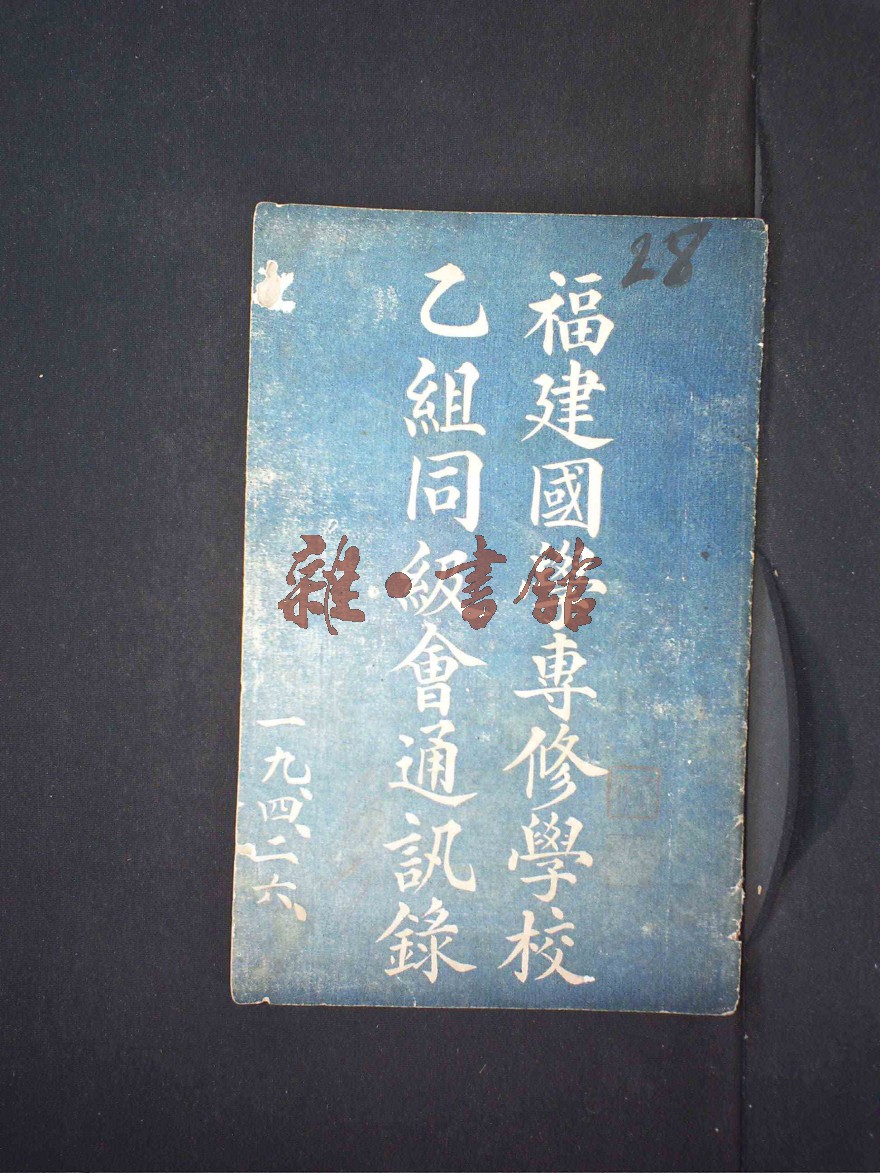 28
福建國學專修學校
乙組同級會通訊錄
一九、四、二六、
雜·書館